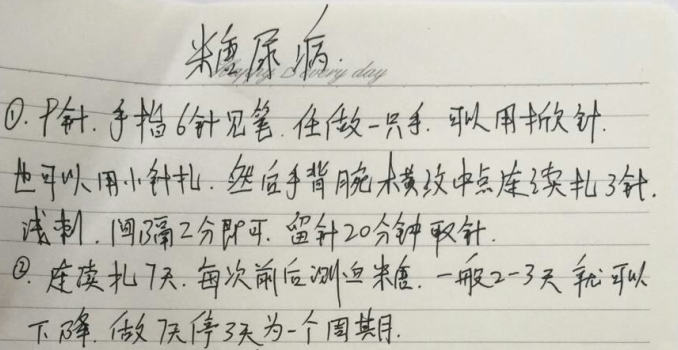 糖尿病.
every day
①. P针. 手指6针见笔. 任做一只手. 可以用掀针.
也可以用小针扎. 然后手背腕横纹中点连续扎3针.
浅刺. 间隔2分即可. 留针20分钟取针.
②. 连续扎7天. 每次前后测血糖. 一般2-3天就可以
下降. 做7天停3天为一个周期.